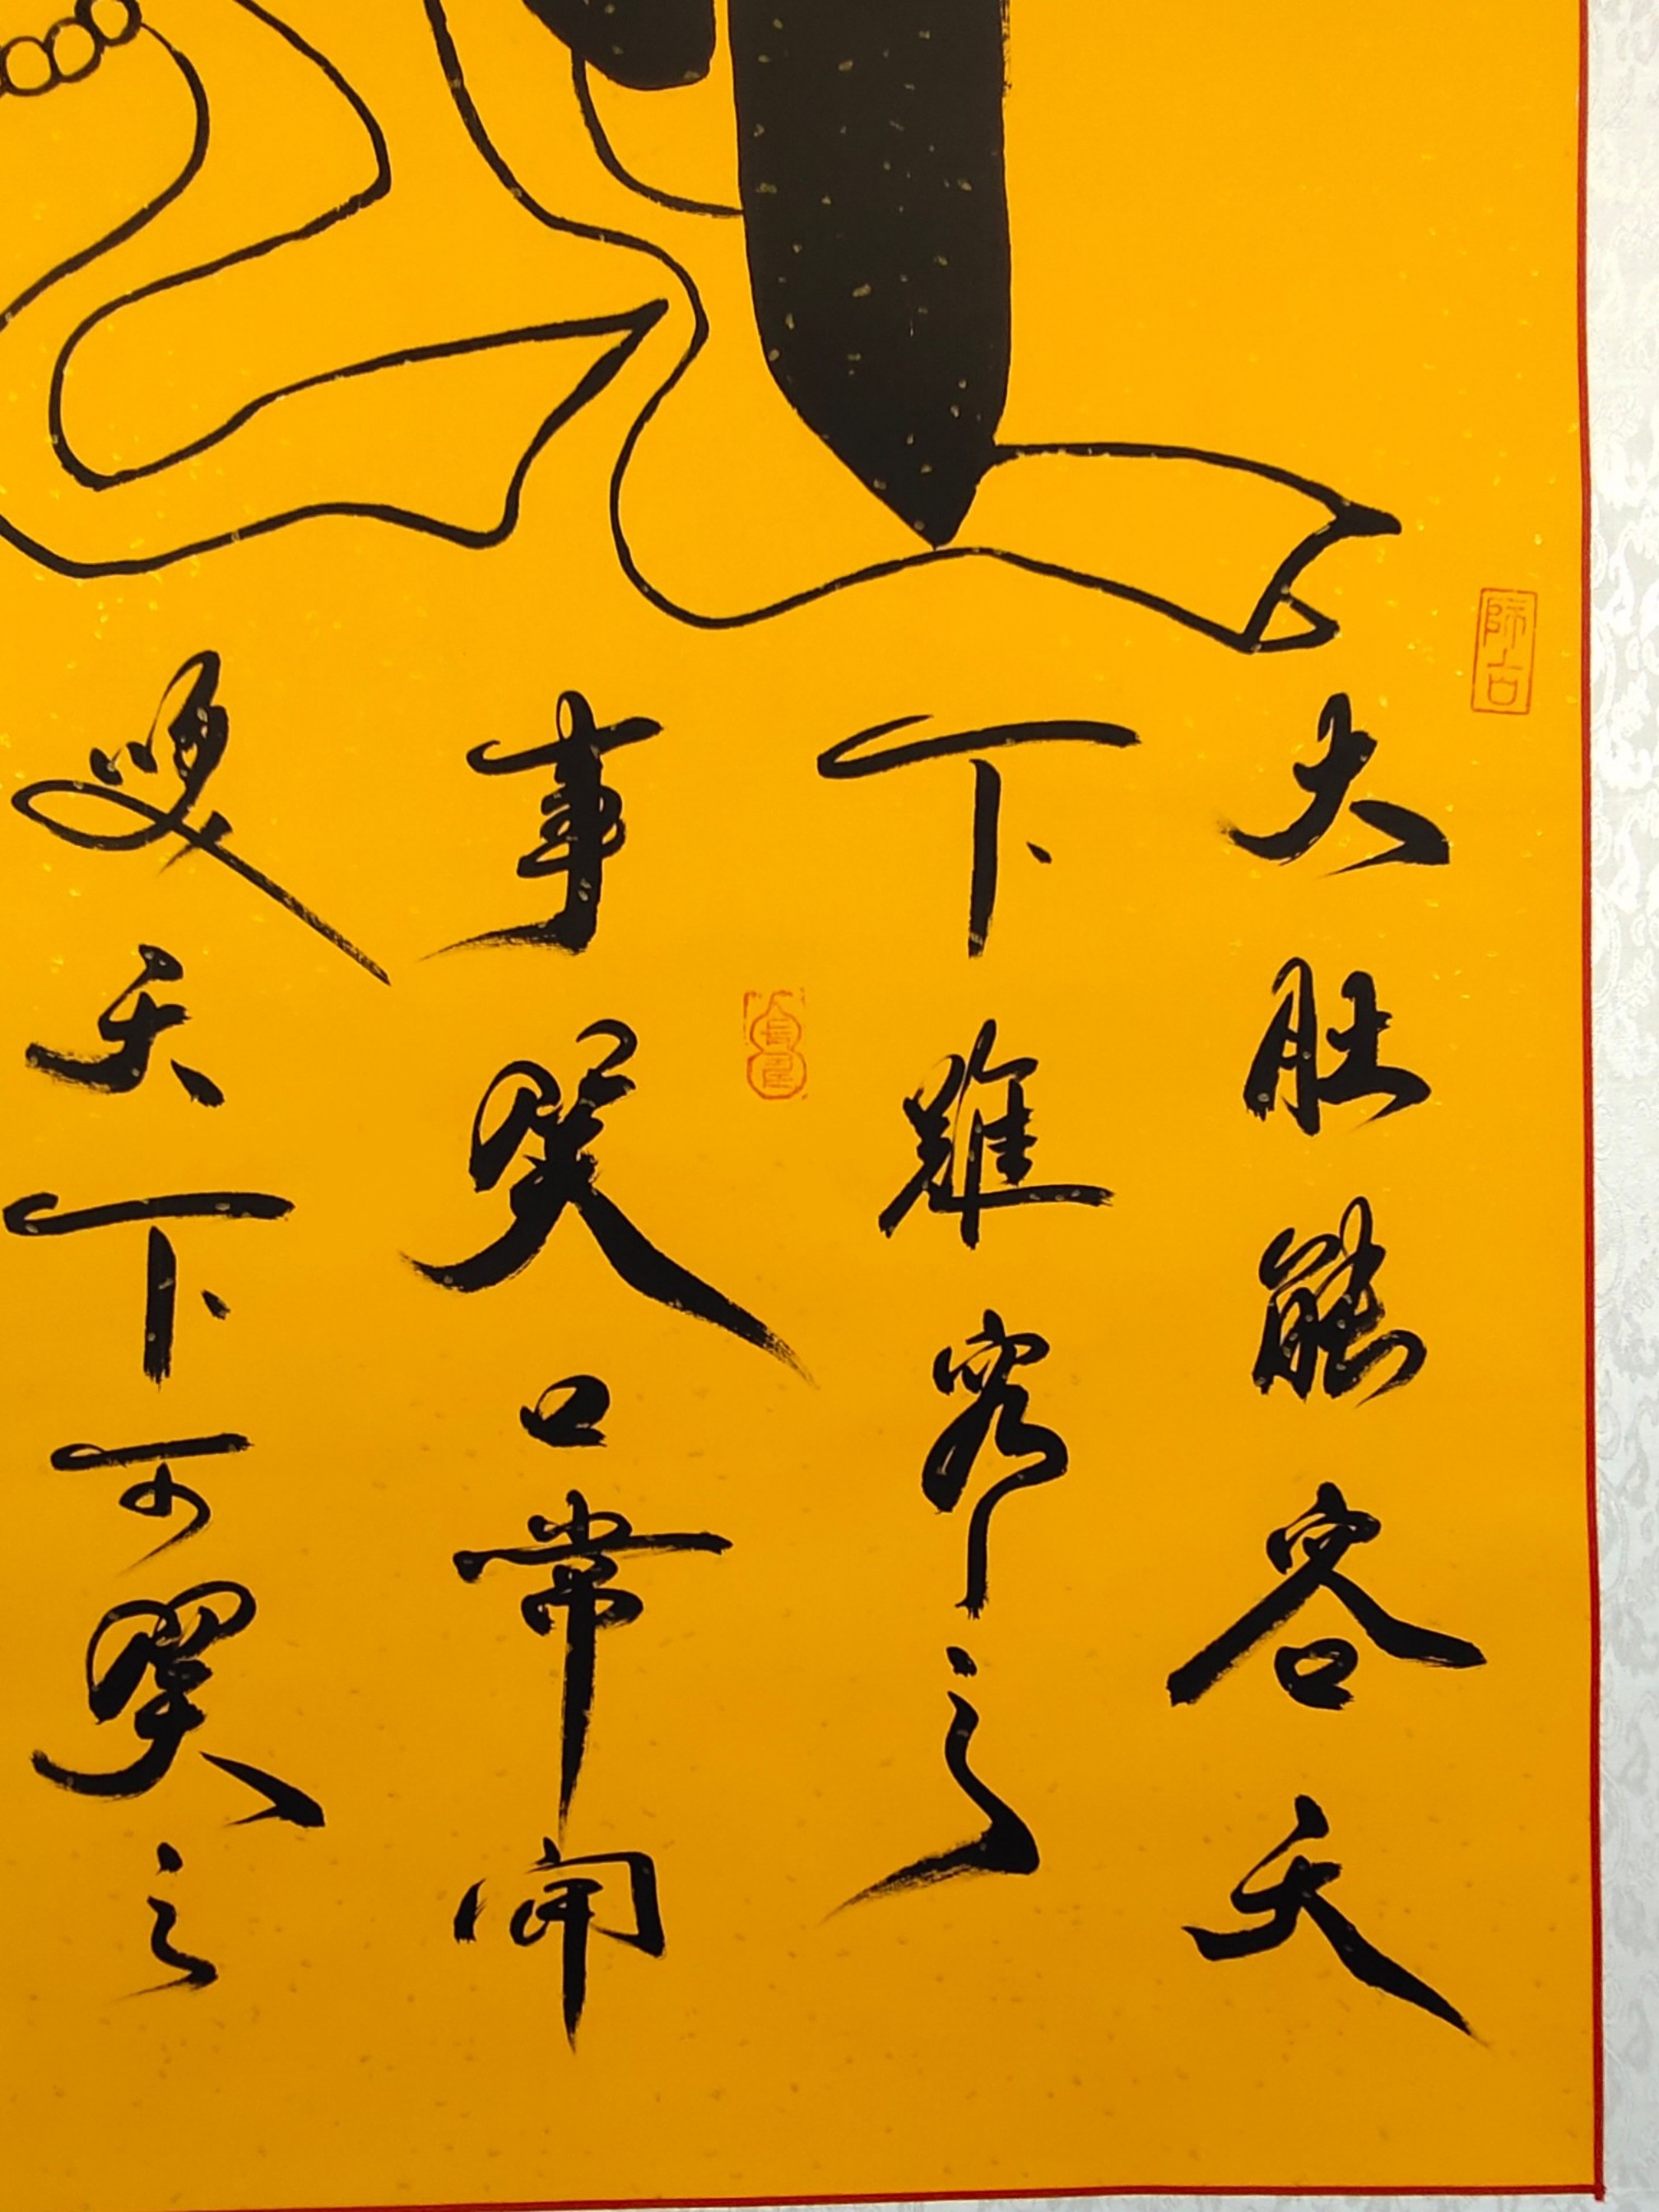 師古
大肚能容天
下難容之
事笑口常開
笑天下可笑之